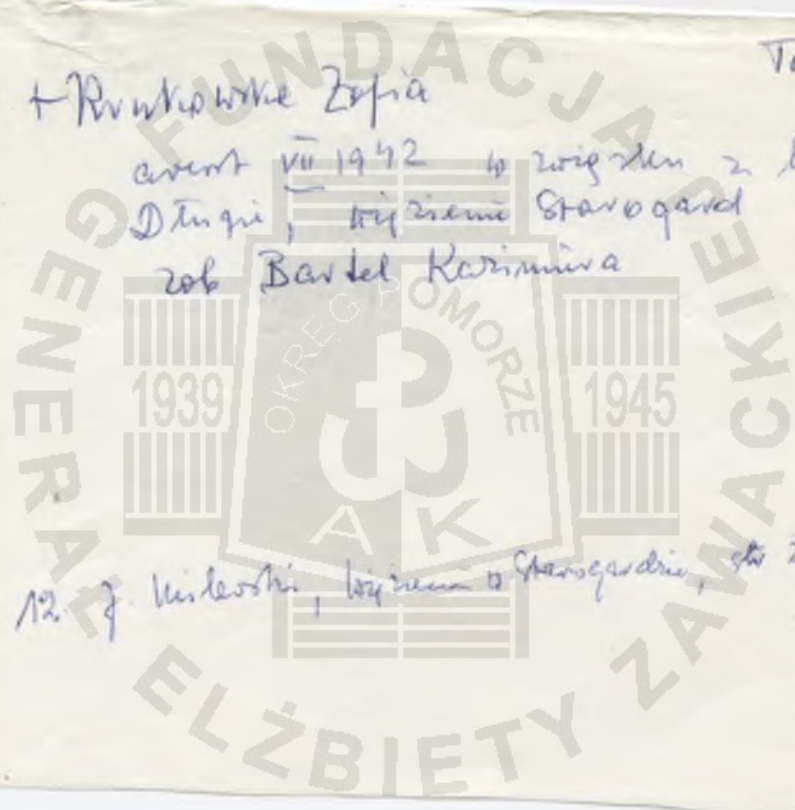 To
+ Rutkowska Zofia
areszt VII 1942 w związku z
Długie, więzienie Starogard
zob Bartel Kazimiera
12. J. Milewski, Więzienie w Starogardzie, str
FUNDACJA
GENERAŁ ELŻBIETY ZAWACKIEJ
OKRĘG POMORZE
1939
1945
AK